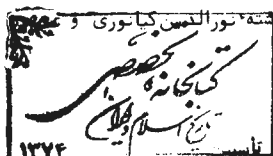 نورالدین کیانوری و
کتابخانه تخصصی
تاریخ اسلام و ایران
تأسیس ۱۳۷۴